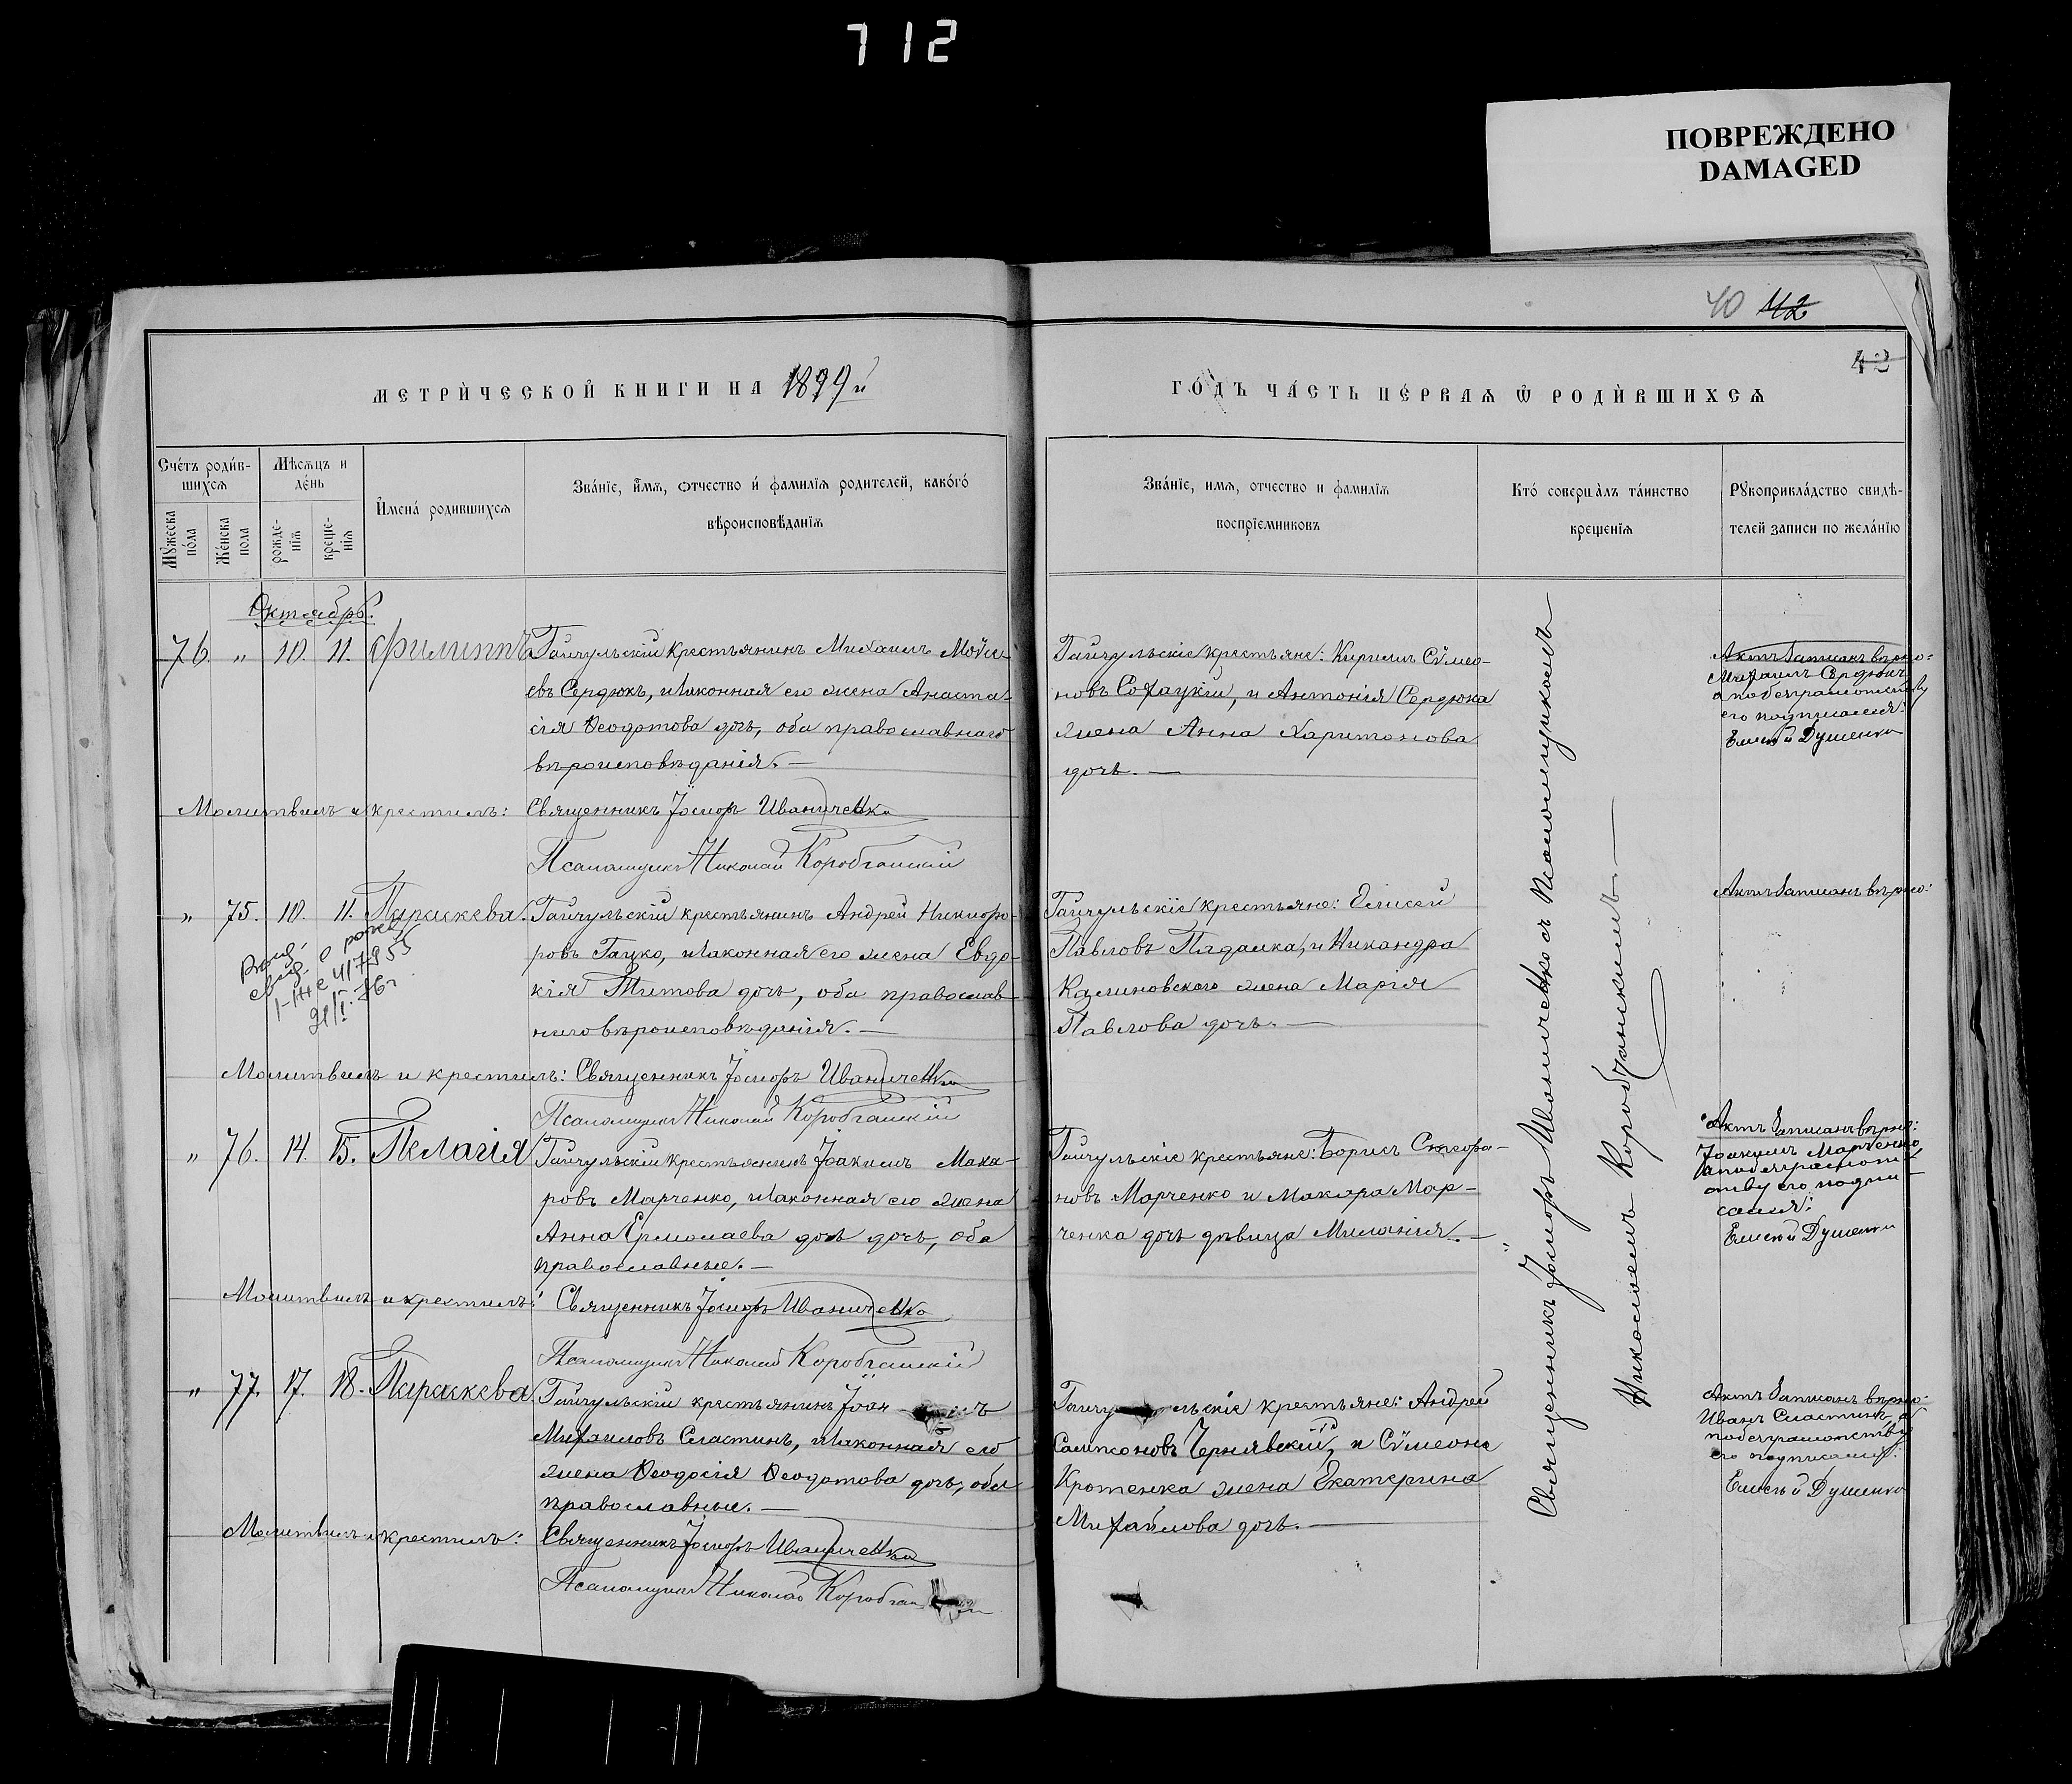 712
ПОВРЕЖДЕНО
DAMAGED
40 42
42
МЕТРИЧЕСКОЙ КНИГИ НА 1899й
ГОДЪ ЧАСТЬ ПЕРВАЯ Ѿ РОДИВШИХСЯ
Счетъ родив-
шихся
Мѣсяцъ и
день
Мужеска
пола
Женска
пола
рожде-
нія
креще-
нія
Имена родившихся
Званіе, имя, отчество и фамилія родителей, какого
вѣроисповѣданія
Званіе, имя, отчество и фамилія
воспріемниковъ
Кто совершалъ таинство
крещенія
Рукоприкладство свидѣ-
телей записи по желанію
Октябрь.
76. " 10. 11. Филиппъ
Гайчульскій крестьянинъ Михаилъ Мойсе-
евъ Сердюкъ, и законная его жена Анаста-
сія Ѳеодотова дочь, оба православнаго
вѣроисповѣданія.—
Гайчульскіе крестьяне: Кириллъ Сѵмео-
новъ, и Антонія Сердюка
жена Анна Харитонова
дочь.—
Актъ записанъ вѣрно:
Михаилъ Сердюкъ,
а по безграмотству
его подписался:
Елисей Душенко
Молитвилъ и крестилъ: Священникъ Іосифъ Иваниченко
Псаломщикъ Николай Коробчанскій
" 75. 10. 11. Параскева.
Гайчульскій крестьянинъ Андрей Никифо-
ровъ Гацко, и законная его жена Евдо-
кія Титова дочь, оба православ-
наго вѣроисповѣданія.—
Гайчульскіе крестьяне: Елисей
Павловъ Падалка, и Никандра
Калиновского жена Марія
Павлова дочь.—
Актъ записанъ вѣрно:
свид. о рожд.
21/I-76г
Молитвилъ и крестилъ: Священникъ Іосифъ Иваниченко
Псаломщикъ Николай Коробчанскій
" 76. 14. 15. Пелагія
Гайчульскій крестьянинъ Іоакимъ Мака-
ровъ Марченко, и законная его жена
Анна Ермолаева дочь дочь, оба
православные.—
Гайчульскіе крестьяне: Борисъ Стефа-
новъ Марченко и Макара Мар-
ченка дочь дѣвица Миланія.—
Актъ записанъ вѣрно:
Іоакимъ Марченко
а по безграмот-
ству его подпи-
сался:
Елисей Душенко
Молитвилъ и крестилъ: Священникъ Іосифъ Иваниченко
Псаломщикъ Николай Коробчанскій
" 77. 17. 18. Параскева
Гайчульскій крестьянинъ Іоан
Михаиловъ Сластинъ, и законная его
жена Ѳеодосія Ѳеодотова дочь, оба
православные.—
Гайчульскіе крестьяне: Андрей
Сампсоновъ Чернявскій, и Сѵмеона
Кротенка жена Екатерина
Михайлова дочь.—
Актъ записанъ вѣрно:
Иванъ Сластинъ, а
по безграмотству
его подписался:
Елисей Душенко
Молитвилъ и крестилъ: Священникъ Іосифъ Иваниченко
Псаломщикъ Николай Коробчанскій
Священникъ Іосифъ Иваниченко съ Псаломщикомъ
Николаемъ Коробчанскимъ.—